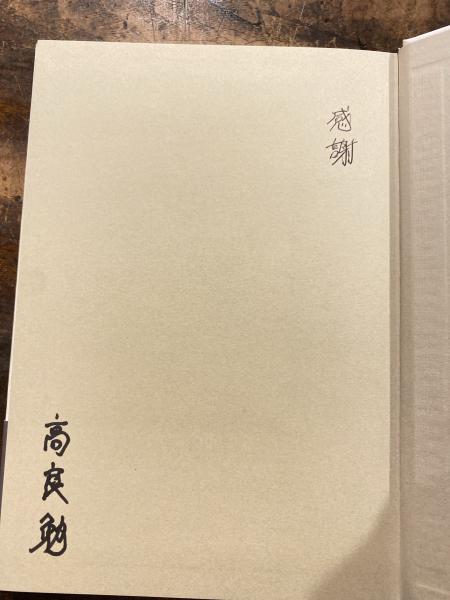 感謝
高良勉